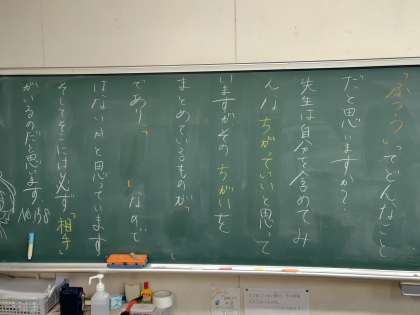 「ふつう」ってどんなこと
だと思いますか？
先生は自分を含めてみ
んなちがっていいと思って
いますがその ちがいを
まとめているものが「　」
であり「　　」なので
はないかと思っています
そしてそこには必ず「相手」
がいるのだと思います。
No.138